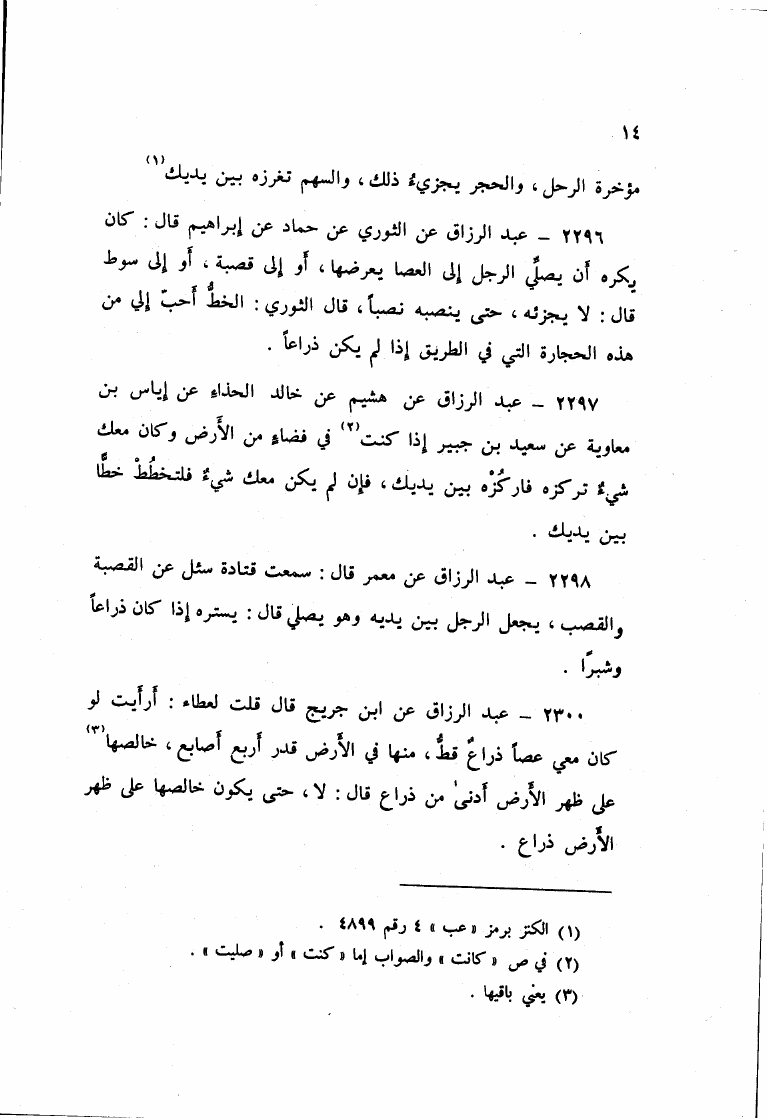 ١٤
مؤخرة الرحل، والحجر يجزيءُ ذلك، والسهم تغرزه بين يديك(١)
٢٢٩٦ – عبد الرزاق عن الثوري عن حماد عن إبراهيم قال : كان
يكره أن يصلّي الرجل إلى العصا يعرضها، أو إلى قصبة، أو إلى سوط
قال : لا يجزئه، حتى ينصبه نصباً، قال الثوري : الخطُّ أَحبّ إلي من
هذه الحجارة التي في الطريق إذا لم يكن ذراعاً .
٢٢٩٧ – عبد الرزاق عن هشيم عن خالد الحذاء عن إياس بن
معاوية عن سعيد بن جبير إذا كنت(٢) في فضاءٍ من الأَرض وكان معك
شيءٌ تركزه فاركُزْه بين يديك، فإن لم يكن معك شيءٌ فلتخطُطْ خطًّا
بين يديك .
٢٢٩٨ – عبد الرزاق عن معمر قال : سمعت قتادة سئل عن القصبة
والقصب، يجعل الرجل بين يديه وهو يصلي قال : يستره إذا كان ذراعاً
وشبرًا .
٢٣٠٠ – عبد الرزاق عن ابن جريج قال قلت لعطاء : أَرأَيت لو
كان معي عصاً ذراعٌ قطُّ، منها في الأَرض قدر أَربع أَصابع، خالصها(٣)
على ظهر الأَرض أَدنىٰ من ذراع قال : لا، حتى يكون خالصها على ظهر
الأَرض ذراع .
(١) الكنز برمز «عب» ٤ رقم ٤٨٩٩ .
(٢) في ص «كانت» والصواب إما «كنت» أو «صليت» .
(٣) يعني باقيها .